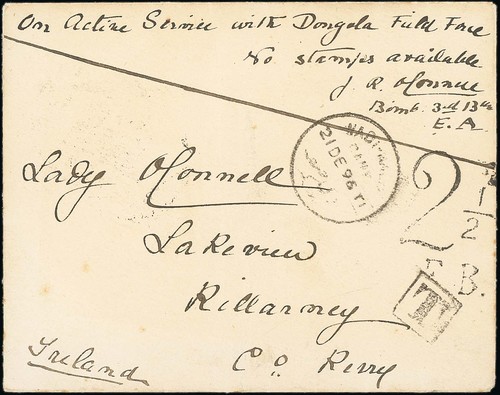 On Active Service with Dongola Field Force
No stamps available
J. R. O'Connell
Bomb. 3rd Btn
E. A
21 DE 96 T1
Lady O'Connell
2 1/2
Lakeview
F.B.
T
Killarney
Ireland Co Kerry